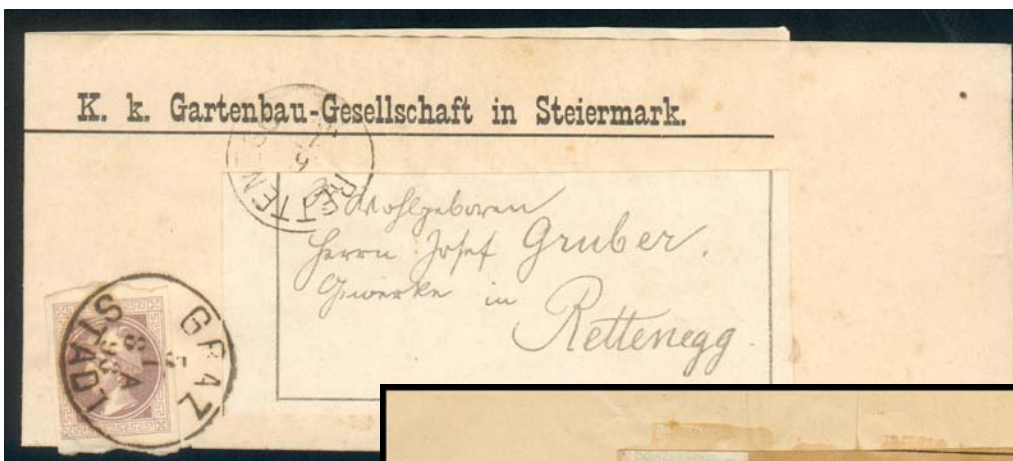 K. k. Gartenbau-Gesellschaft in Steiermark.
RETTENEGG
Wohlgeboren
Herrn Josef Gruber.
Gewerke in
Rettenegg.
GRAZ
STADT